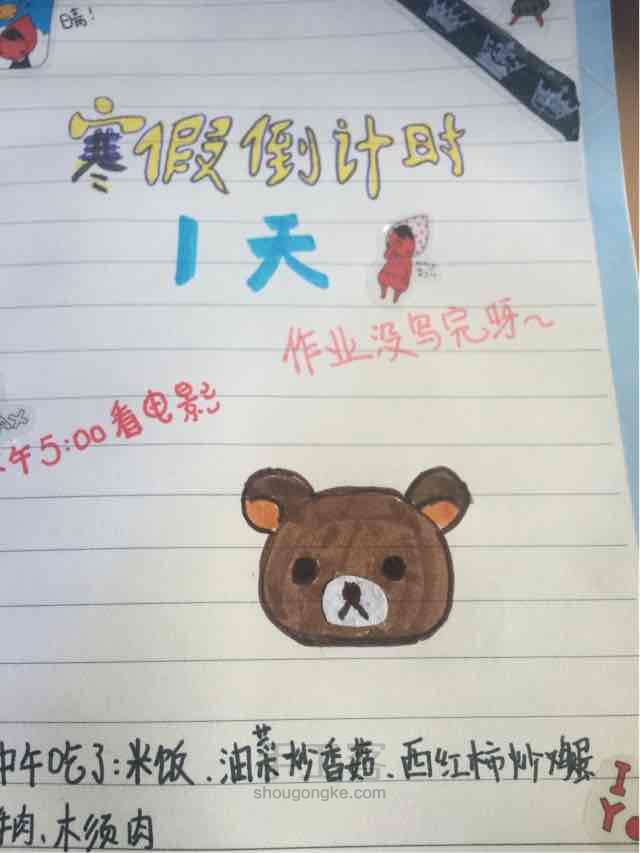 晴!
寒假倒计时
1天
作业没写完呀~
午5:00看电影
中午吃了:米饭、油菜炒香菇、西红柿炒鸡蛋
shougongke.com
肉、木须肉
I
Y